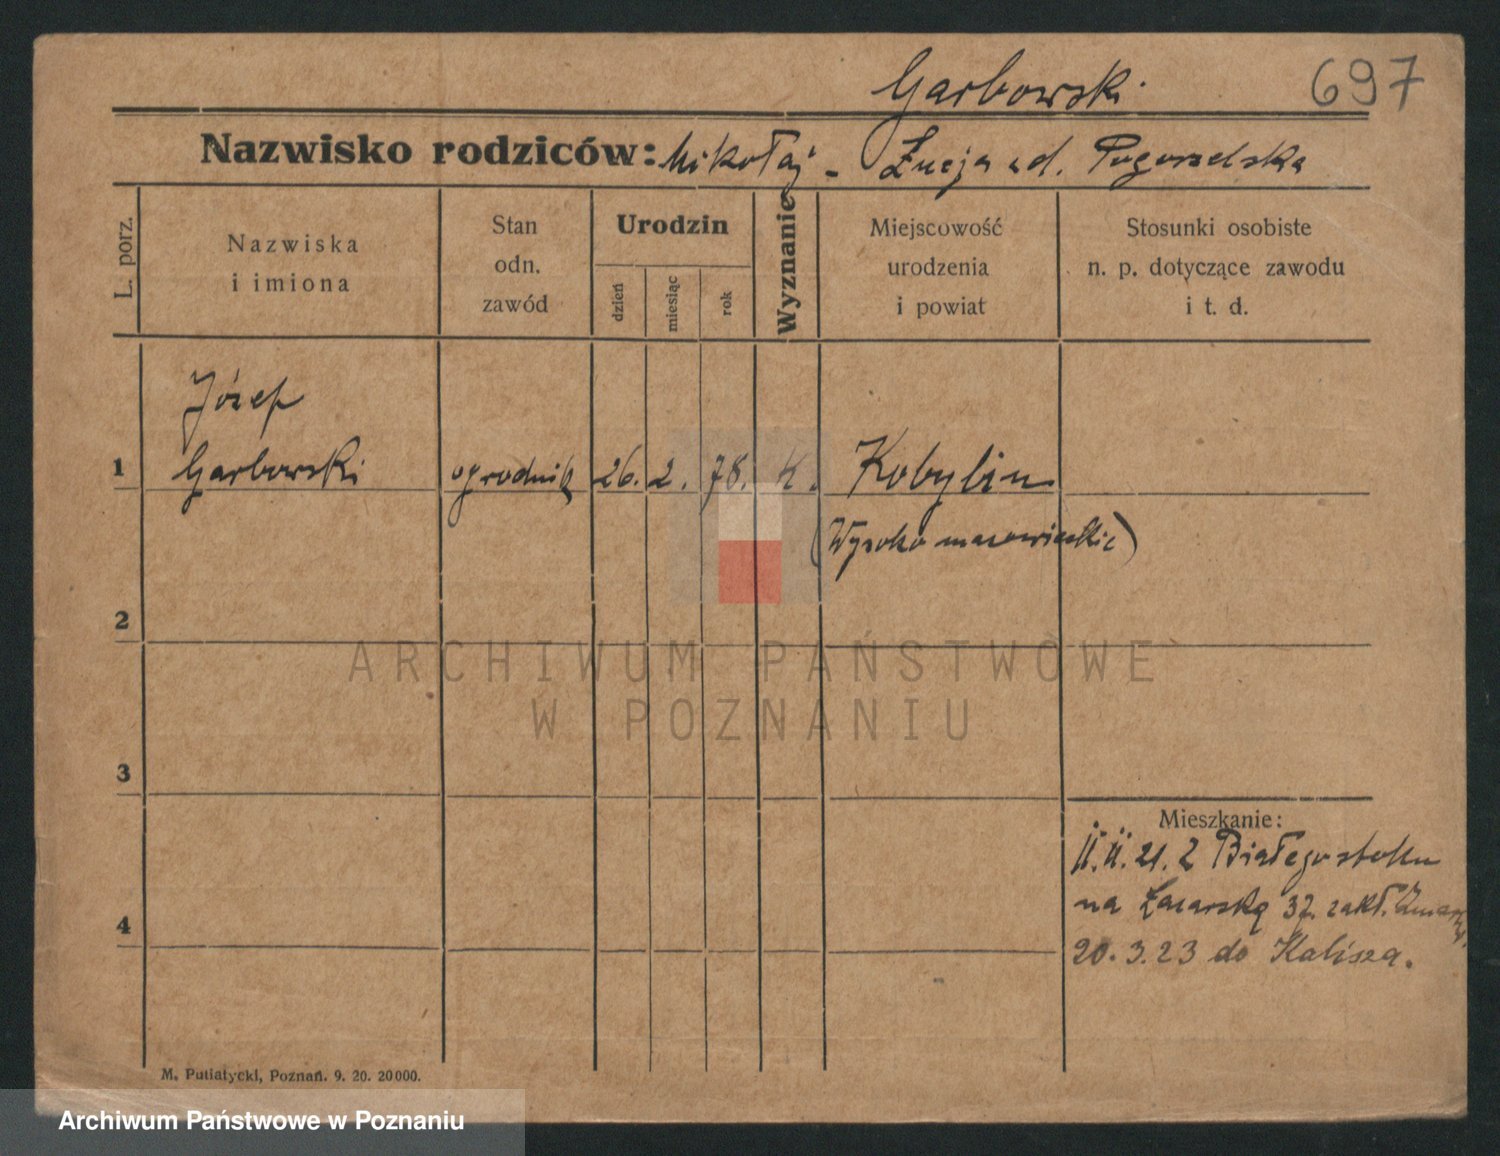 Garbowski 697
Nazwisko rodziców: Mikołaj - Łucja ud. Pogorzelska
L. porz.
Nazwiska
i imiona
Stan
odn.
zawód
Urodzin
dzień
miesiąc
rok
Wyznanie
Miejscowość
urodzenia
i powiat
Stosunki osobiste
n. p. dotyczące zawodu
i t. d.
Józef
1 Garbowski ogrodnik 26. 2. 78. K. Kobylin
(Wysoko mazowieckie)
2
ARCHIWUM PAŃSTWOWE
W POZNANIU
3
Mieszkanie:
21. z Białegostoku
na Łazarską 37. zakł.
4
20.3.23 do Kalisza.
M. Putiatycki, Poznań. 9. 20. 20000.
Archiwum Państwowe w Poznaniu